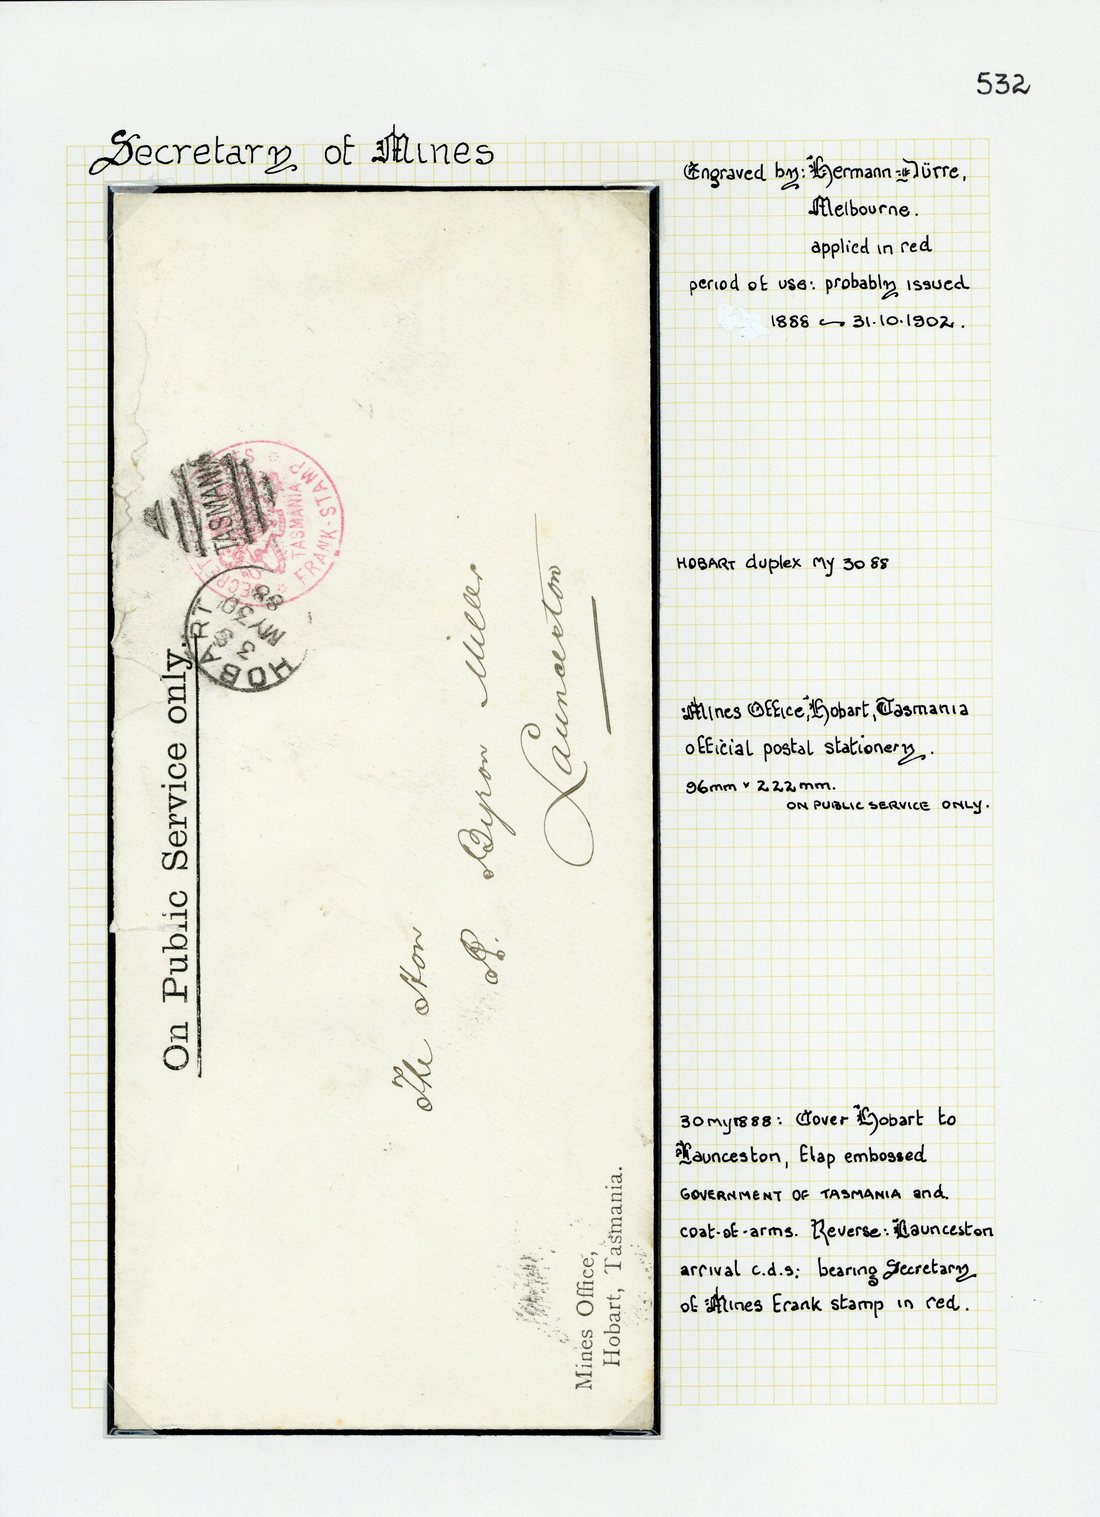 532
Secretary of Mines
Engraved by: Hermann Jürre,
Melbourne.
applied in red
period of use: probably issued
1888 – 31.10.1902.
HOBART duplex My 30 88
Mines Office, Hobart, Tasmania
official postal stationery.
96mm x 222mm.
ON PUBLIC SERVICE ONLY.
30 my 1888: Cover Hobart to
Launceston, flap embossed
GOVERNMENT OF TASMANIA and
coat-of-arms. Reverse: Launceston
arrival c.d.s: bearing Secretary
of Mines Frank stamp in red.
On Public Service only.
TASMANIA
TASMANIA
FRANK-STAMP
HOBART
3 S
MY 30
88
The Hon
Byron Miller
Launceston
Mines Office,
Hobart, Tasmania.